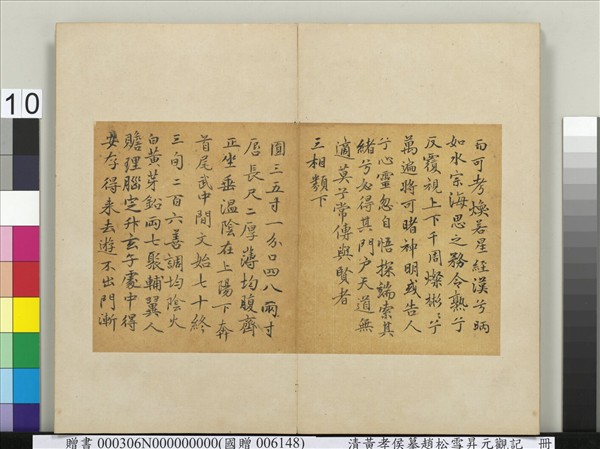 而可考煥若星經漢兮昞
如水宗海思之務令熟兮
反覆視上下千周燦彬〻兮
萬遍將可睹神明或告人
兮心靈忽自悟探端索其
緒兮必得其門户天道無
適莫兮常傳與賢者
三相類下
圓三五寸一分口四八兩寸
唇長尺二厚薄均腹齊
正坐垂溫陰在上陽下奔
首尾武中間文始七十終
三旬二百六善調均陰火
白黃芽鉛兩七聚輔翼人
贍理腦定升玄子處中得
安存得來去遊不出門漸
10
贈書 000306N000000000(國贈 006148) 清黃孝侯摹趙松雪昇元觀記 冊